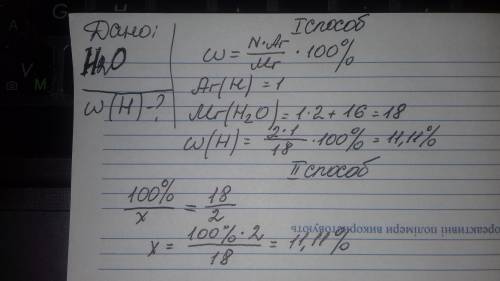 Дано:
H2O
ω(H)-?
I спосіб
ω = N·Ar / Mr · 100%
Ar(H) = 1
Mr(H2O) = 1·2 + 16 = 18
ω(H) = 2·1 / 18 · 100% = 11,11%
II спосіб
100% / x = 18 / 2
x = 100%·2 / 18 = 11,11%
ореактивні полімери використовують